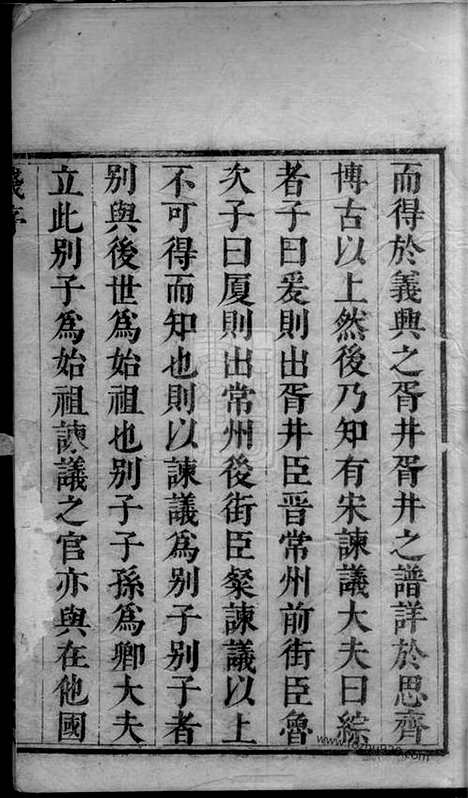 而得於義興之胥井胥井之譜詳於思齊
博古以上然後乃知有宋諫議大夫曰綜
者子曰爰則出胥井臣晉常州前街臣魯
次子曰厦則出常州後街臣粲諫議以上
不可得而知也則以諫議為别子别子者
别與後世為始祖也别子子孫為卿大夫
立此别子為始祖諫議之官亦與在他國